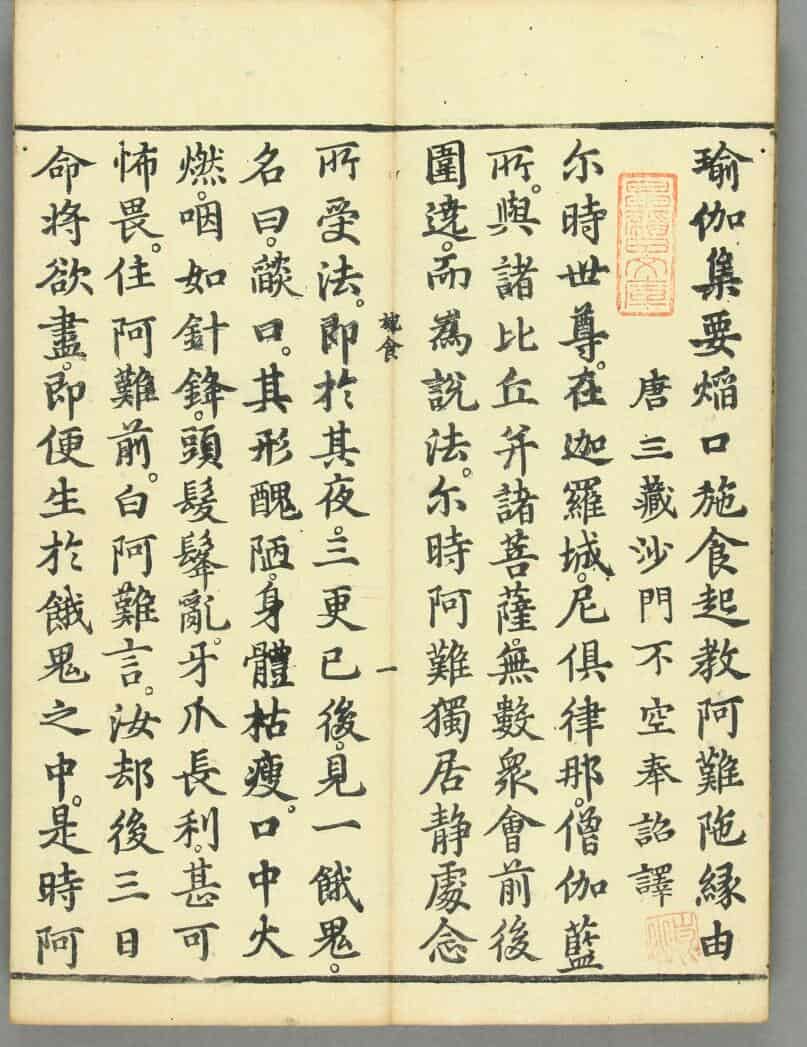 瑜伽集要焔口施食起教阿難陁縁由
唐三藏沙門不空奉詔譯
尔時世尊。在迦羅城。尼俱律那。僧伽藍
所。與諸比丘并諸菩薩。無數衆會前後
圍遶。而為說法。尔時阿難獨居静處念
食
一
所受法。即於其夜。三更已後。見一餓鬼。
名曰。燄口。其形醜陋。身體枯瘦。口中火
燃。咽如針鋒。頭髮髼亂。牙爪長利。甚可
怖畏。住阿難前。白阿難言。汝却後三日
命将欲盡。即便生於餓鬼之中。是時阿